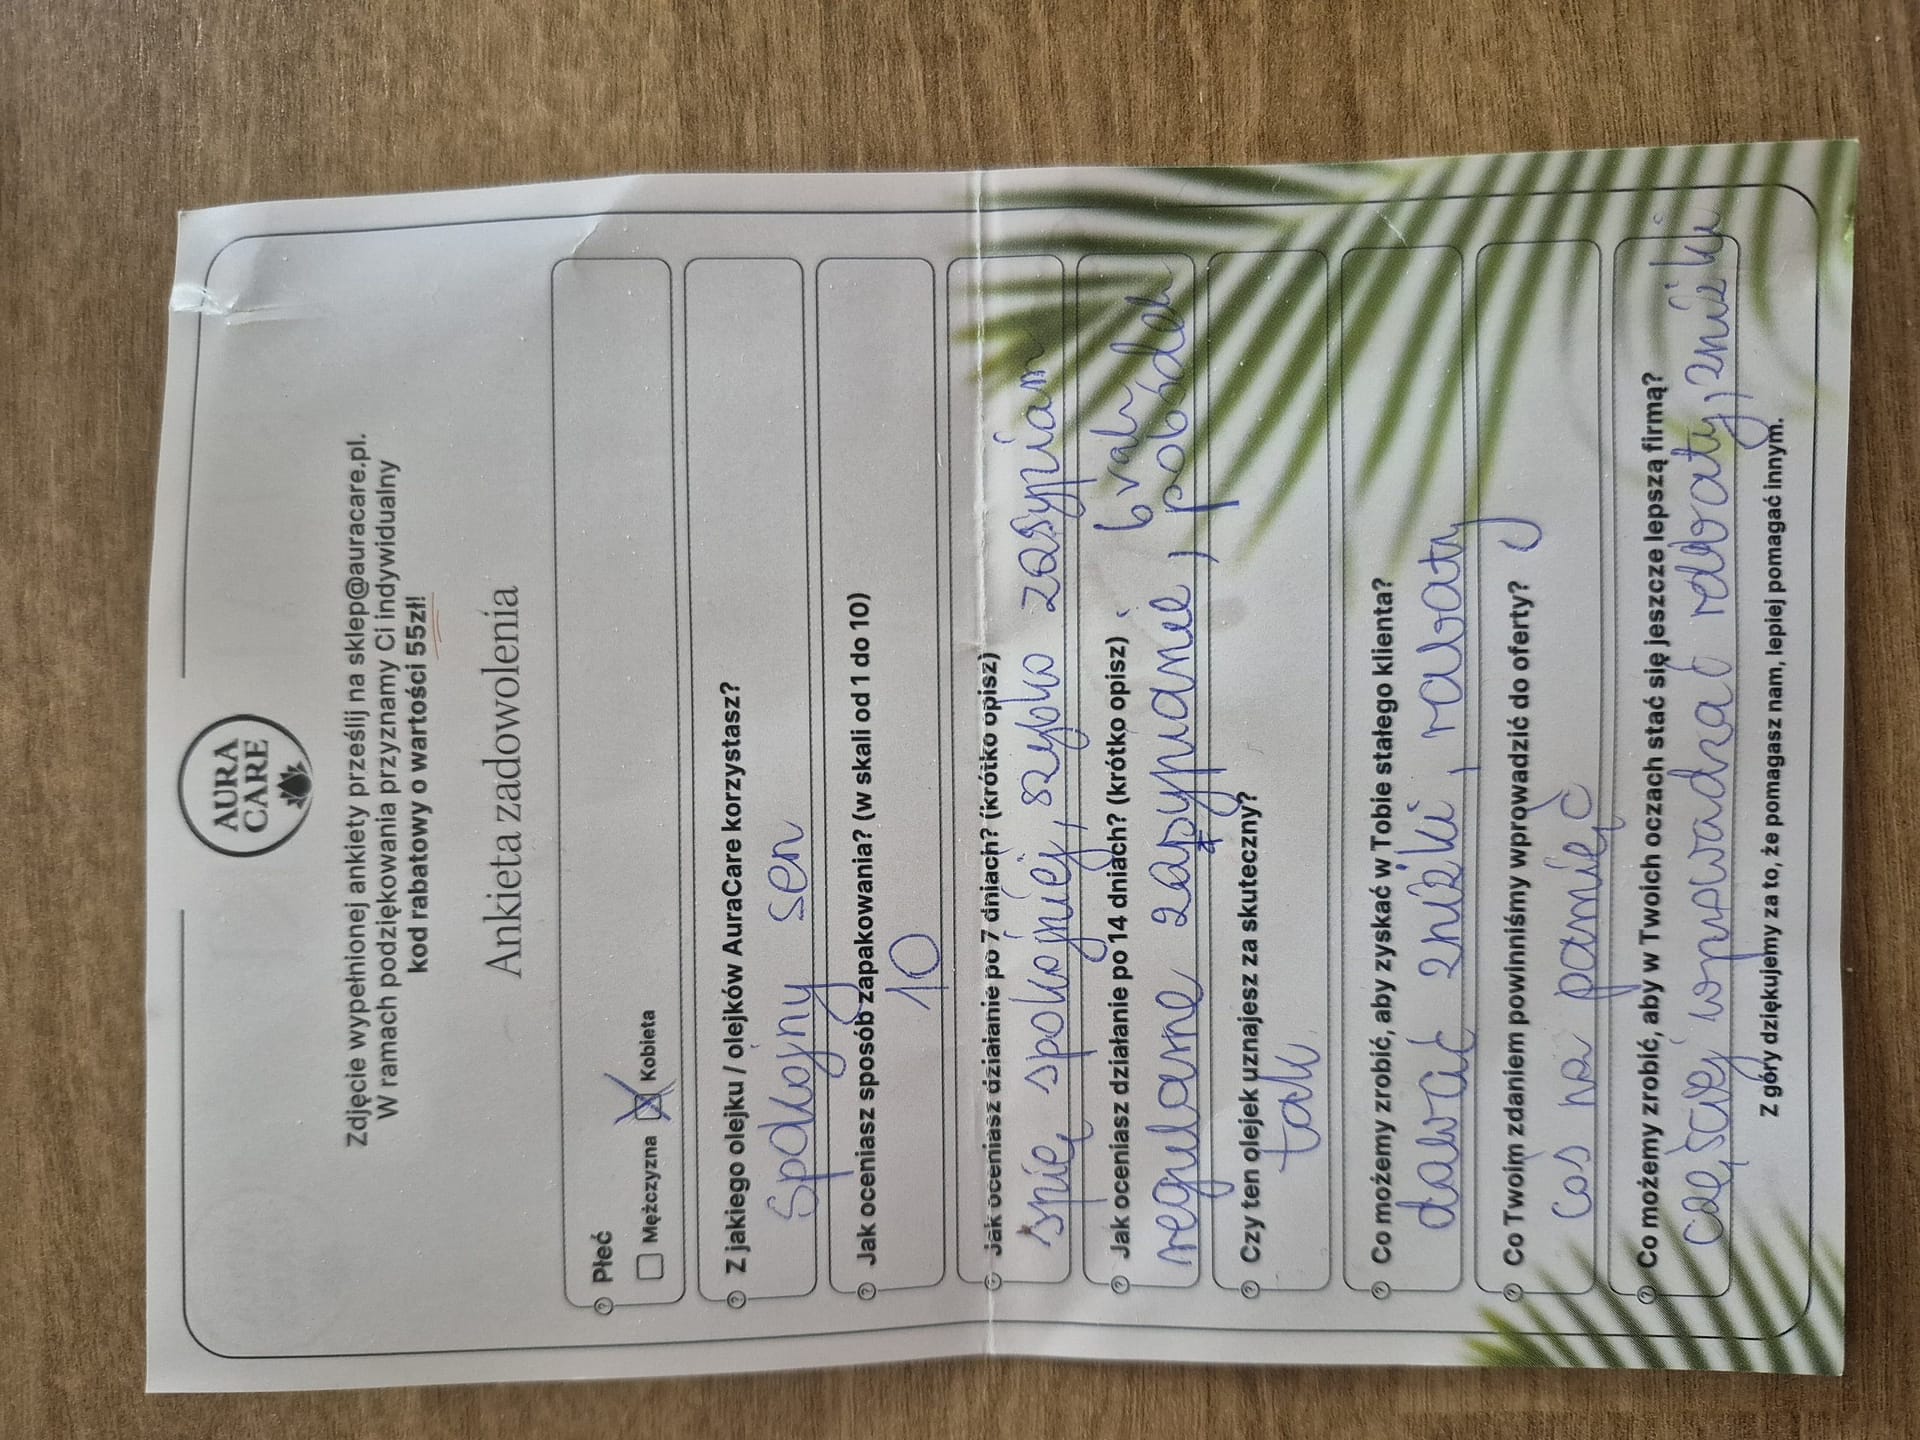 AURA
CARE
Zdjęcie wypełnionej ankiety prześlij na sklep@auracare.pl.
W ramach podziękowania przyznamy Ci indywidualny
kod rabatowy o wartości 55zł!
Ankieta zadowolenia
Płeć
Mężczyzna Kobieta
Z jakiego olejku / olejków AuraCare korzystasz?
Spokojny sen
Jak oceniasz sposób zapakowania? (w skali od 1 do 10)
10
Jak oceniasz działanie po 7 dniach? (krótko opisz)
śpię spokojniej, szybko zasypiam
Jak oceniasz działanie po 14 dniach? (krótko opisz)
brak
regularne zasypianie, pobódek
Czy ten olejek uznajesz za skuteczny?
tak
Co możemy zrobić, aby zyskać w Tobie stałego klienta?
dawać zniżki, rabaty
Co Twoim zdaniem powinniśmy wprowadzić do oferty?
coś na pamięć
Co możemy zrobić, aby w Twoich oczach stać się jeszcze lepszą firmą?
częściej wprowadzać rabaty, zniżki
Z góry dziękujemy za to, że pomagasz nam, lepiej pomagać innym.